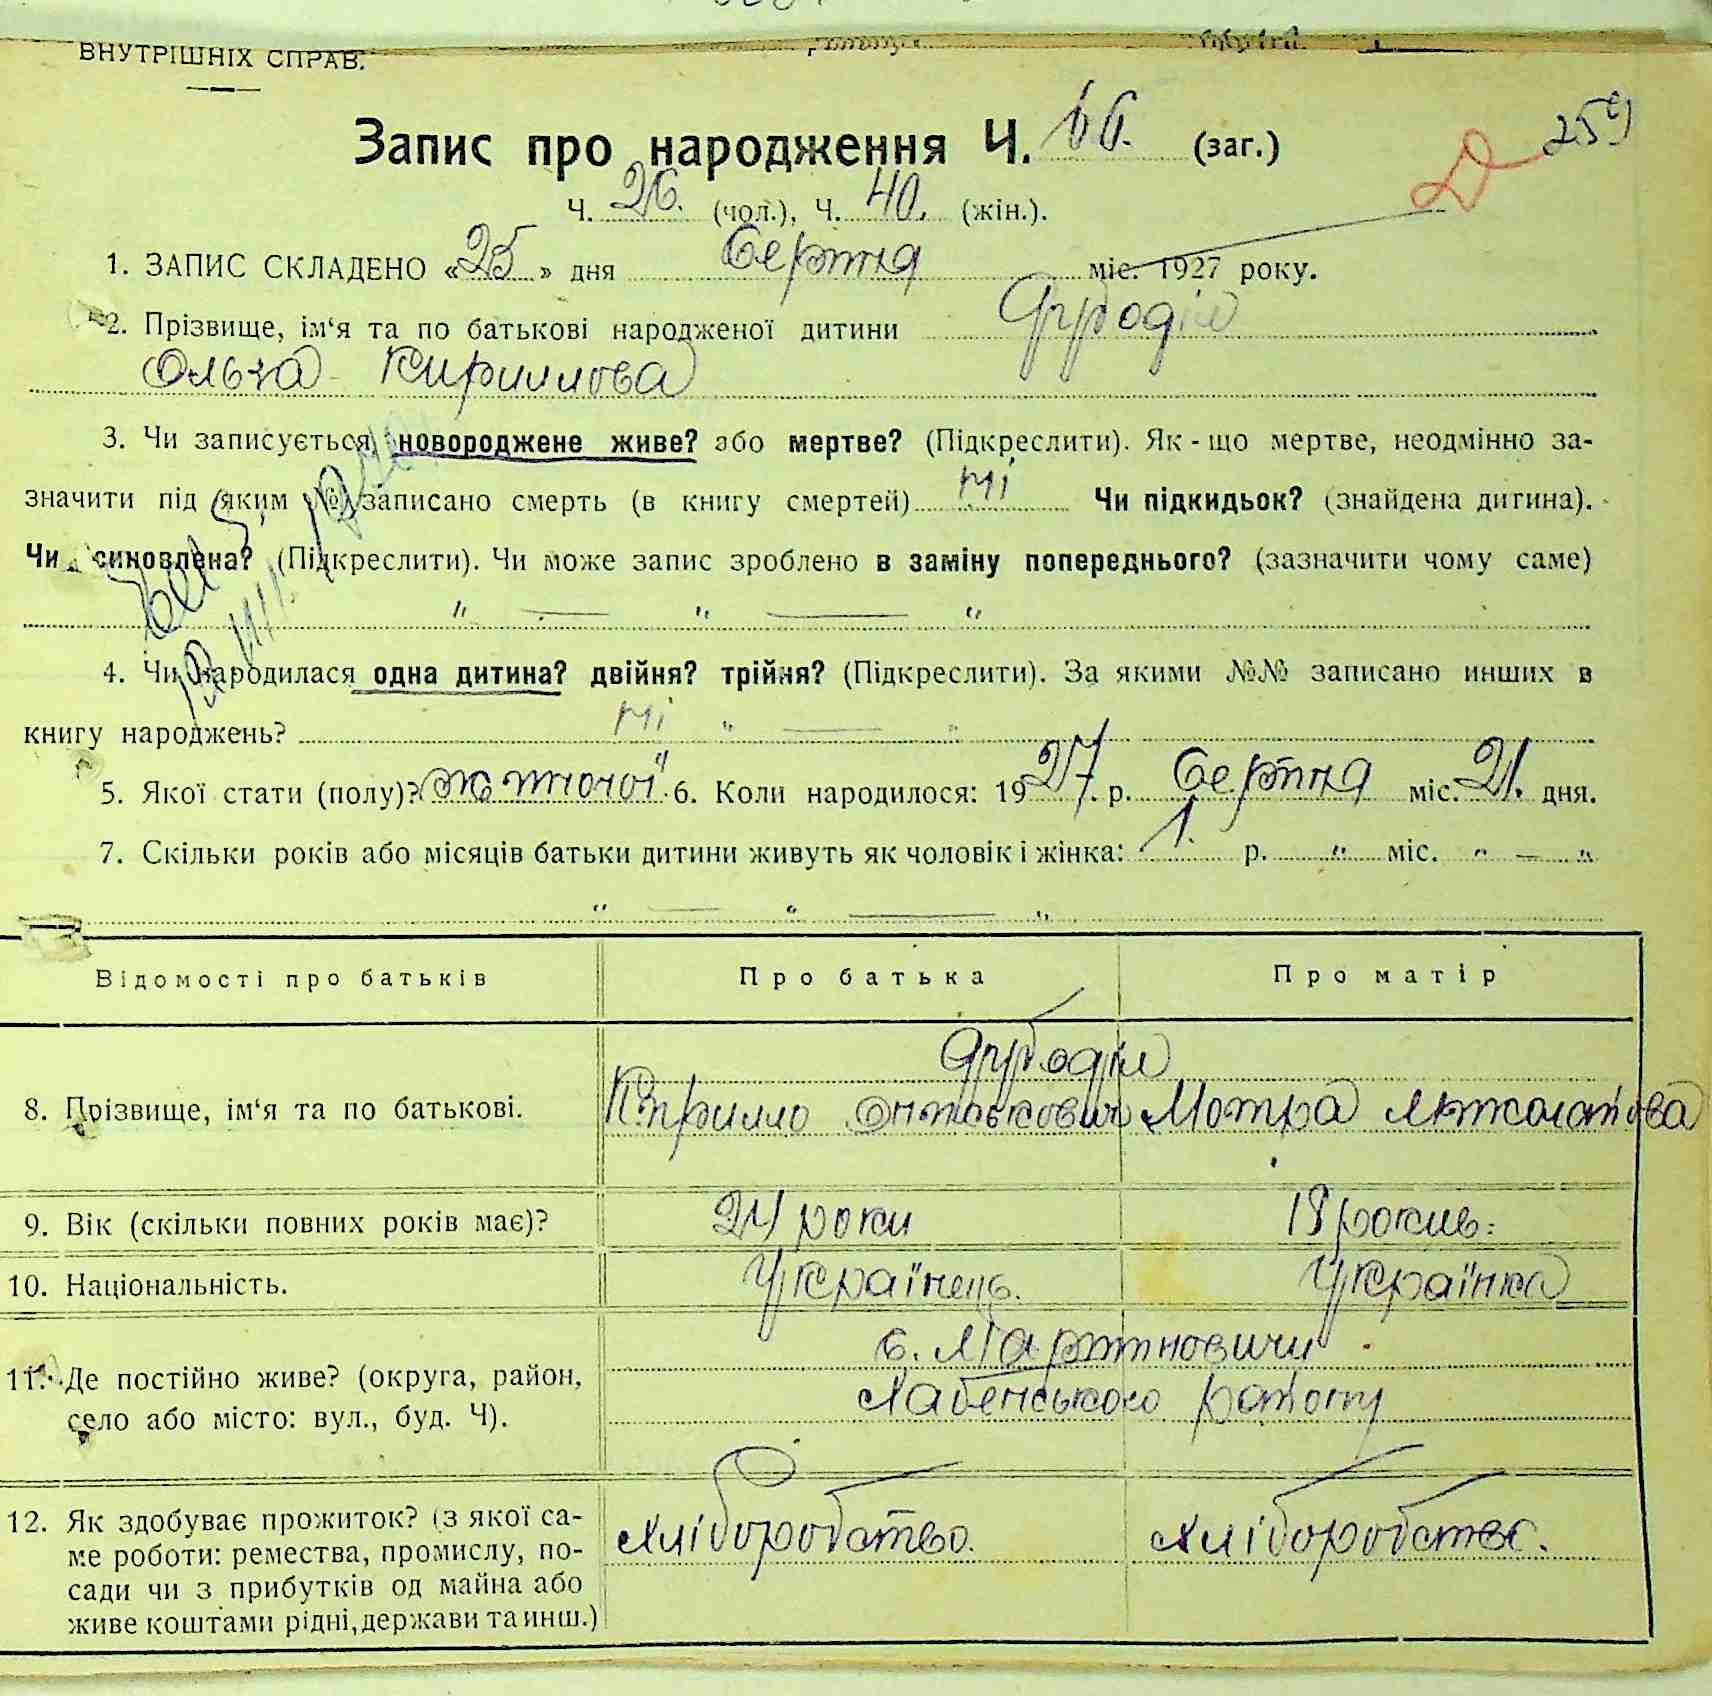 ВНУТРІШНІХ СПРАВ.
Запис про народження Ч. 66. (заг.)
259
Ч. 26. (чол.), Ч. 40. (жін.).
1. ЗАПИС СКЛАДЕНО «25» дня Серпня міс. 1927 року.
2. Прізвище, ім‘я та по батькові народженої дитини
Ольга Кириллова
3. Чи записується новороджене живе? або мертве? (Підкреслити). Як-що мертве, неодмінно за-
значити під яким № записано смерть (в книгу смертей) ні Чи підкидьок? (знайдена дитина).
Чи синовлена? (Підкреслити). Чи може запис зроблено в заміну попереднього? (зазначити чому саме)
" — " — "
4. Чи народилася одна дитина? двійня? трійня? (Підкреслити). За якими №№ записано инших в
книгу народжень? ні " — "
5. Якої стати (полу)? жіночої 6. Коли народилося: 1927. р. Серпня міс. 21. дня.
7. Скільки років або місяців батьки дитини живуть як чоловік і жінка: 1. р. " міс. " — "
" — " — "
Відомості про батьків Про батька Про матір
8. Прізвище, ім‘я та по батькові. Кирилло Мотра
9. Вік (скільки повних років має)? 24 роки 18 років.
10. Національність. Українець. Українка
с. Мартиновичи
11. Де постійно живе? (округа, район,
село або місто: вул., буд. Ч). Хабенського району
12. Як здобуває прожиток? (з якої са-
ме роботи: ремества, промислу, по-
сади чи з прибутків од майна або
живе коштами рідні, держави та инш.)
хліборобство. хліборобство.